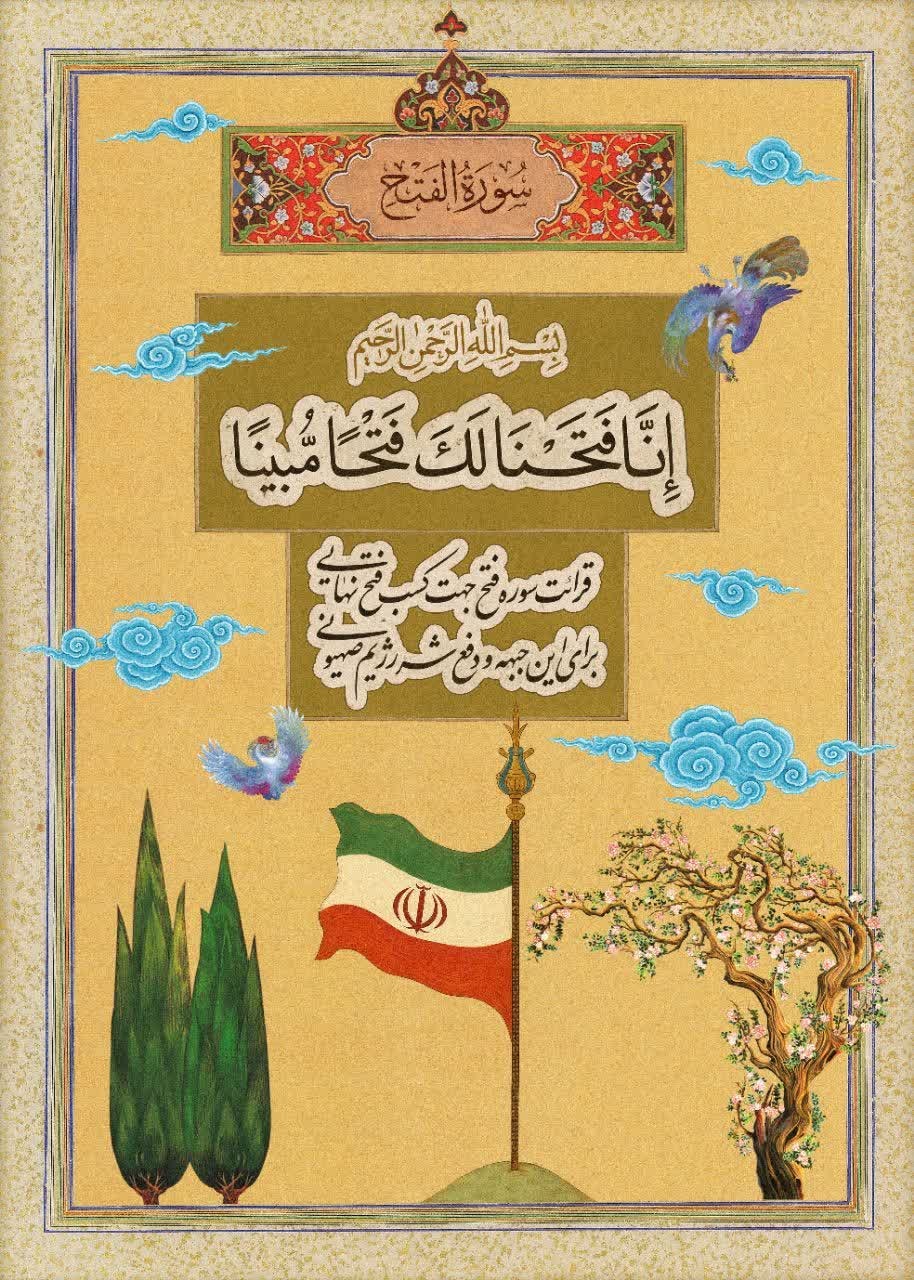 سُورَةُ الفَتح
بِسْمِ اللَّهِ الرَّحْمٰنِ الرَّحِيمِ
إِنَّا فَتَحْنَا لَكَ فَتْحًا مُّبِينًا
قرائت سوره فتح جهت کسب فتح نهایی
برای این جبهه و دفع شر رژیم صهیونی